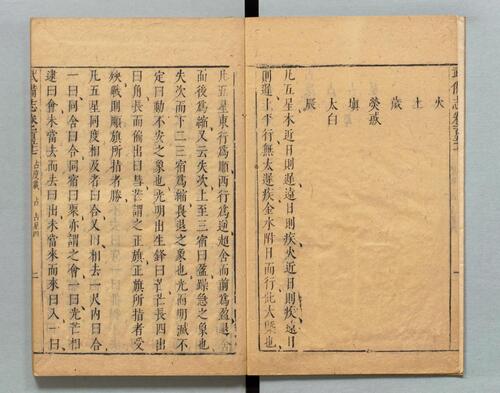 火
土
歲
熒惑
塡
太白
辰
凡五星木近日則遲遠日則疾火近日則疾遠日
則遲土平行無太遲疾金水附日而行此大槩也
凡五星東行爲順西行爲逆超舍而前爲盈退舍
而後爲縮又云失次上至三宿曰盈躁急之象也
失次而下二三宿爲縮喪退之象也光而明滅不
定曰動不安之象也光明出生鋒曰芒芒長四出
曰角長而偏出曰彗芒謂之正旗正旗所指者受
殃戰則順旗所指者勝
凡五星同度相及者曰合又曰相去一尺内曰合
一曰同舍曰合同宿曰聚亦謂之會一曰光芒相
逮曰會未當去而去曰出未當來而來曰入一曰
武備志卷
占度載
占
占星四
二